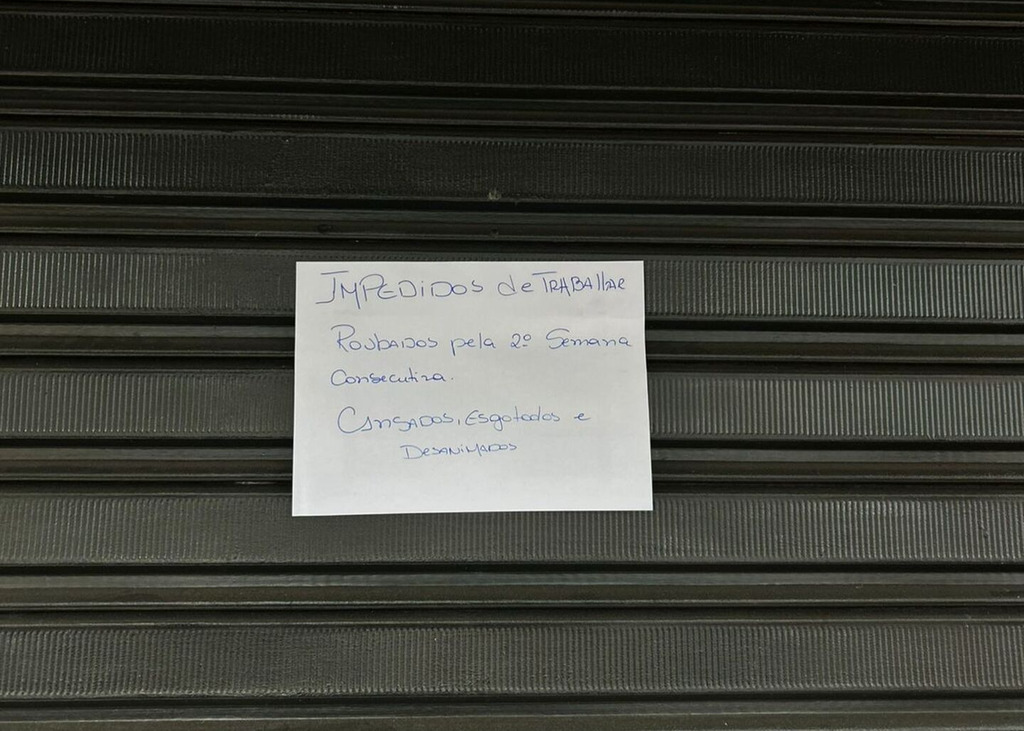 IMPEDIDOS de TRABALHAR
ROUBADOS pela 2º Semana
Consecutiva.
CANSADOS, Esgotados e
DESANIMADOS